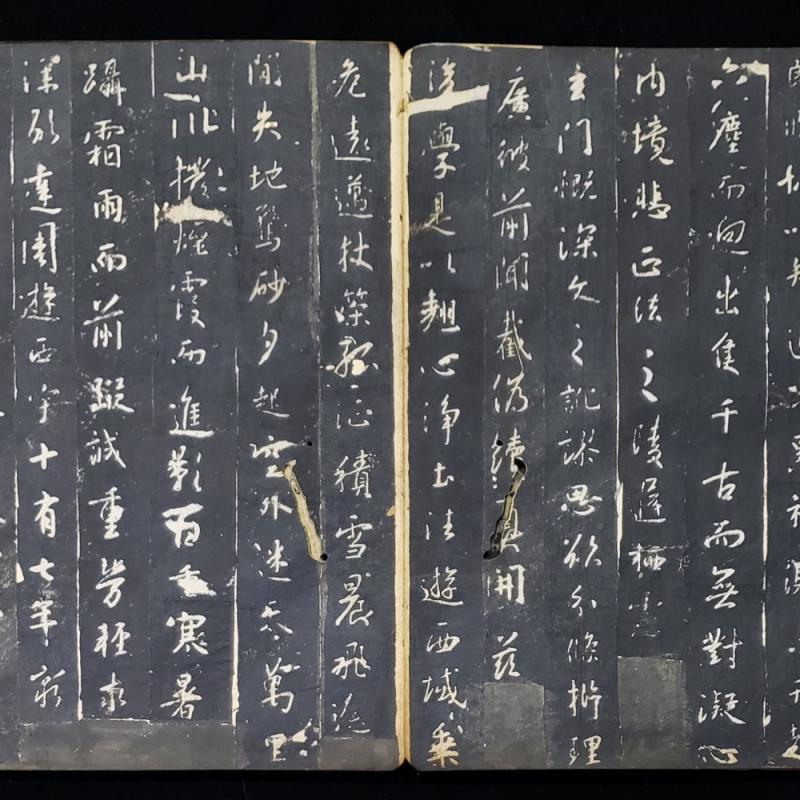 以智通無累神測未形超
六塵而迥出隻千古而無對凝心
內境悲正法之陵遲栖慮
玄門慨深文之訛謬思欲分條析理
廣彼前聞截偽續真開茲
後學是以翹心淨土法遊西域乘
危遠邁杖策孤征積雪晨飛途
間失地驚砂夕起空外迷天萬里
山川撥煙霞而進影百重寒暑
躡霜雨而前蹤誠重勞輕求
深願達周遊西宇十有七年窮